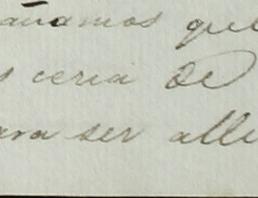 añamos que
s ceria de
ara ser alli